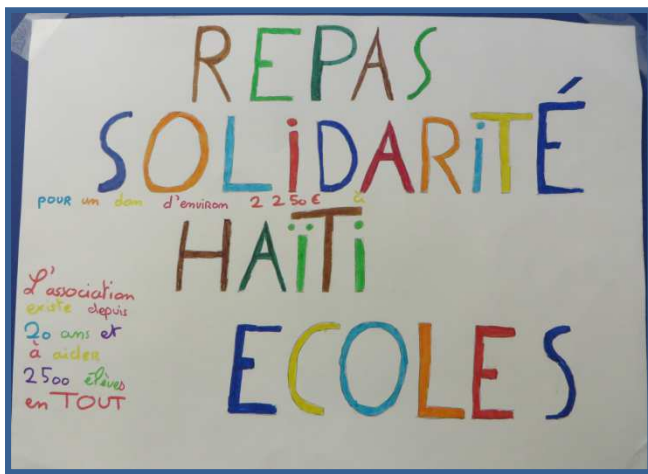 REPAS
SOLiDARiTÉ
pour un don d'environ 2 250 € à
HAïTi
L'association
existe depuis
20 ans et
à aider
2500 élèves
en TOUT
ECOLES